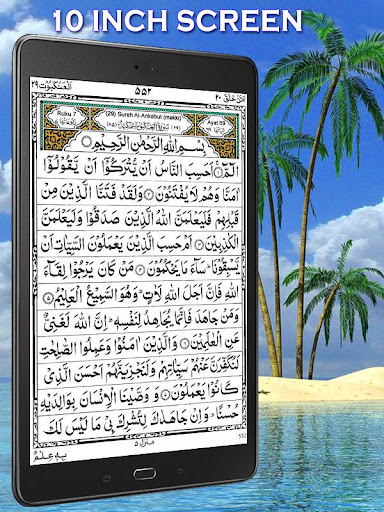 10 INCH SCREEN
اَلْعَنْكَبُوْت ٢٩
۵۵۲
اَمَّنْ خَلَقَ ٢٠
Ruku 7
(29) Surah Al-Ankabut (makki)
Ayat 69
بِسْمِ اللهِ الرَّحْمٰنِ الرَّحِيْمِ
الٓمّٓ ۚ اَحَسِبَ النَّاسُ اَنْ يُّتْرَكُوْٓا اَنْ يَّقُوْلُوْٓا
اٰمَنَّا وَهُمْ لَا يُفْتَنُوْنَ ۝ وَلَقَدْ فَتَنَّا الَّذِيْنَ مِنْ
قَبْلِهِمْ فَلَيَعْلَمَنَّ اللهُ الَّذِيْنَ صَدَقُوْا وَلَيَعْلَمَنَّ
الْكٰذِبِيْنَ ۝ اَمْ حَسِبَ الَّذِيْنَ يَعْمَلُوْنَ السَّيِّاٰتِ اَنْ
يَّسْبِقُوْنَا ؕ سَآءَ مَا يَحْكُمُوْنَ ۝ مَنْ كَانَ يَرْجُوْا لِقَآءَ
اللهِ فَاِنَّ اَجَلَ اللهِ لَاٰتٍ ؕ وَهُوَ السَّمِيْعُ الْعَلِيْمُ ۝
وَمَنْ جَاهَدَ فَاِنَّمَا يُجَاهِدُ لِنَفْسِهٖ ؕ اِنَّ اللهَ لَغَنِيٌّ
عَنِ الْعٰلَمِيْنَ ۝ وَالَّذِيْنَ اٰمَنُوْا وَعَمِلُوا الصّٰلِحٰتِ
لَنُكَفِّرَنَّ عَنْهُمْ سَيِّاٰتِهِمْ وَلَنَجْزِيَنَّهُمْ اَحْسَنَ الَّذِيْ
كَانُوْا يَعْمَلُوْنَ ۝ وَوَصَّيْنَا الْاِنْسَانَ بِوَالِدَيْهِ
حُسْنًا ؕ وَاِنْ جَاهَدٰكَ لِتُشْرِكَ بِيْ مَا لَيْسَ لَكَ
منزل ۵
552
بِهٖ عِلْمٌ